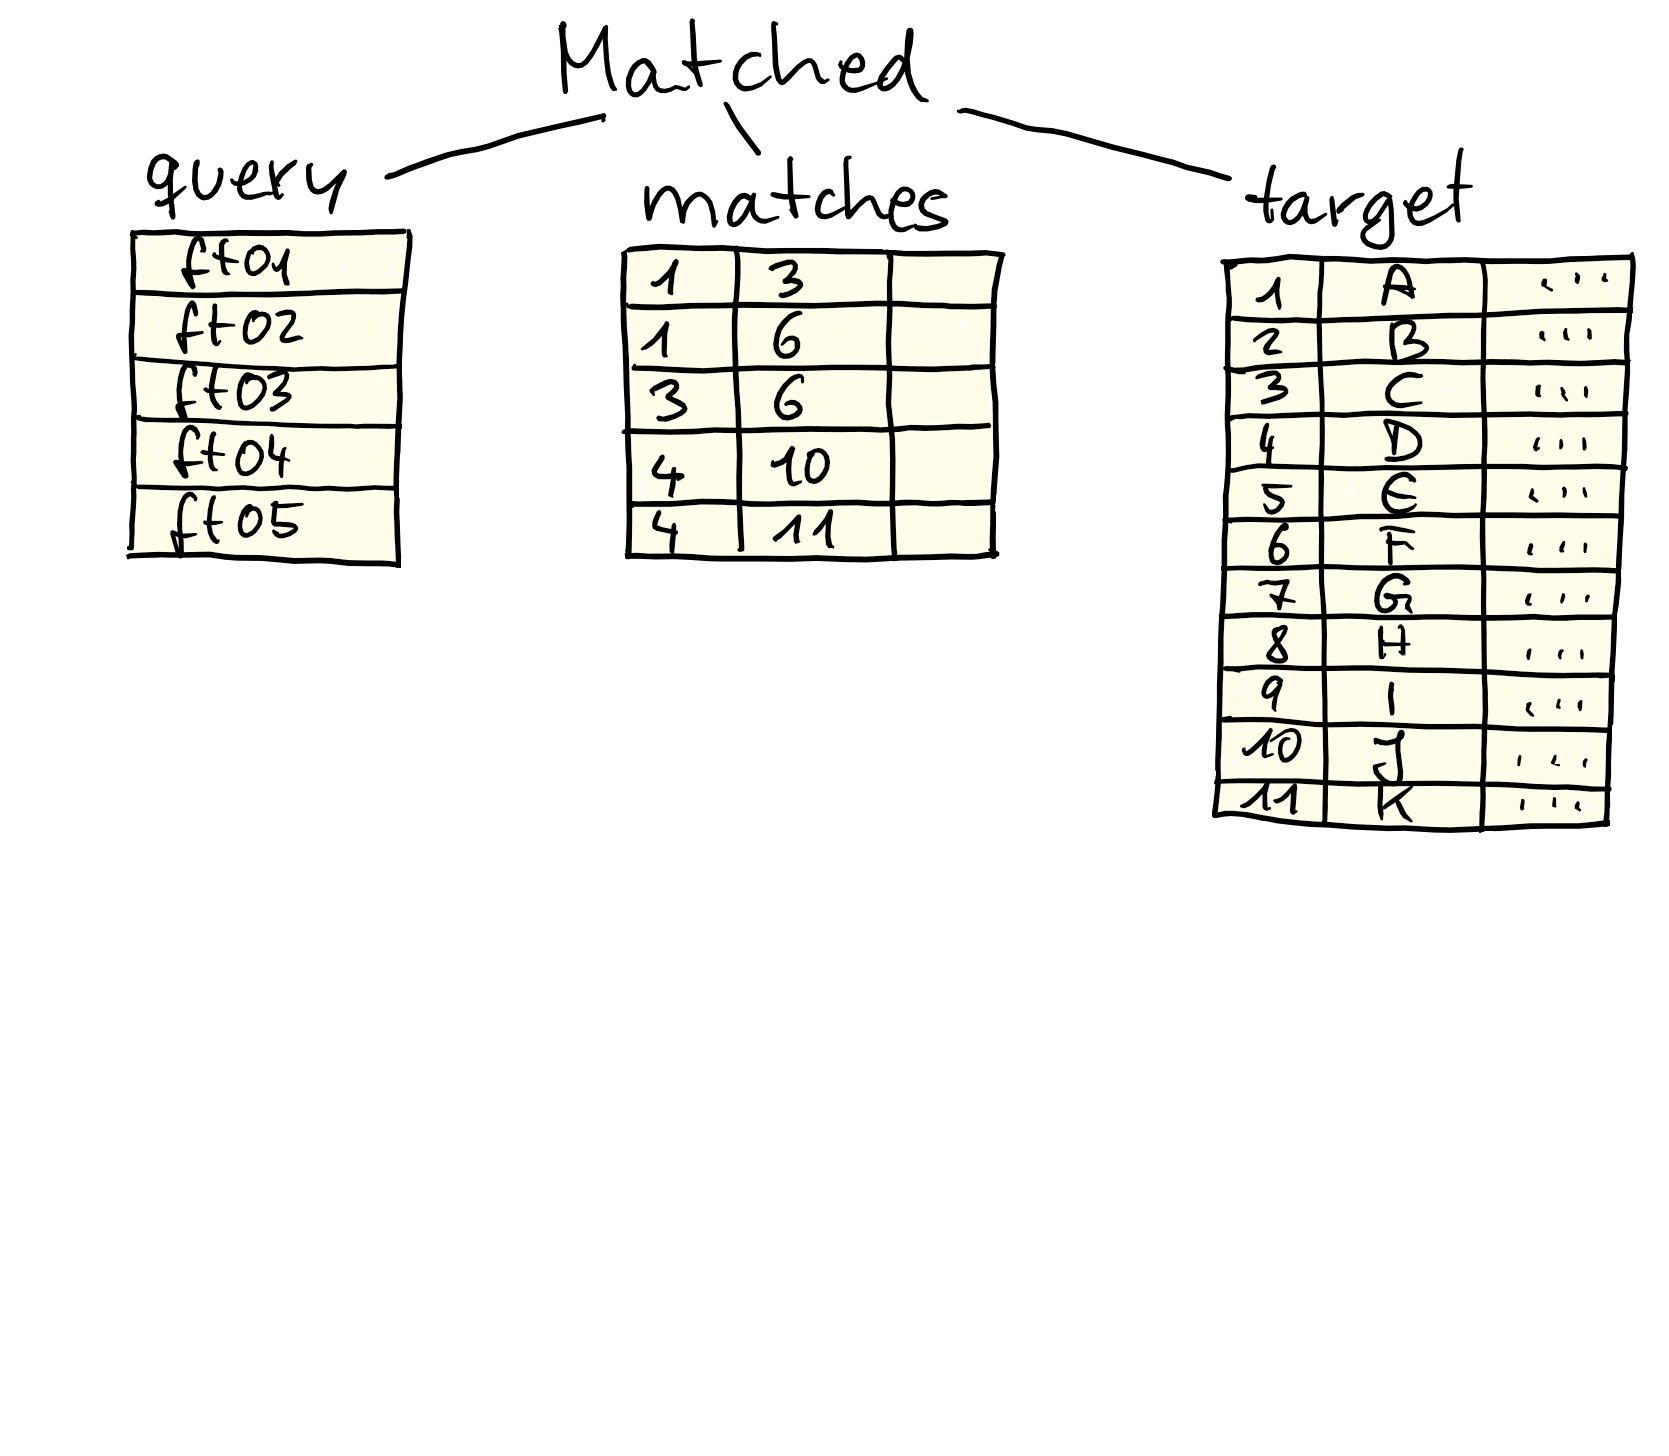 Matched
query
ft01
ft02
ft03
ft04
ft05
matches
1 3
1 6
3 6
4 10
4 11
target
1 A ...
2 B ...
3 C ...
4 D ...
5 E ...
6 F ...
7 G ...
8 H ...
9 I ...
10 J ...
11 K ...